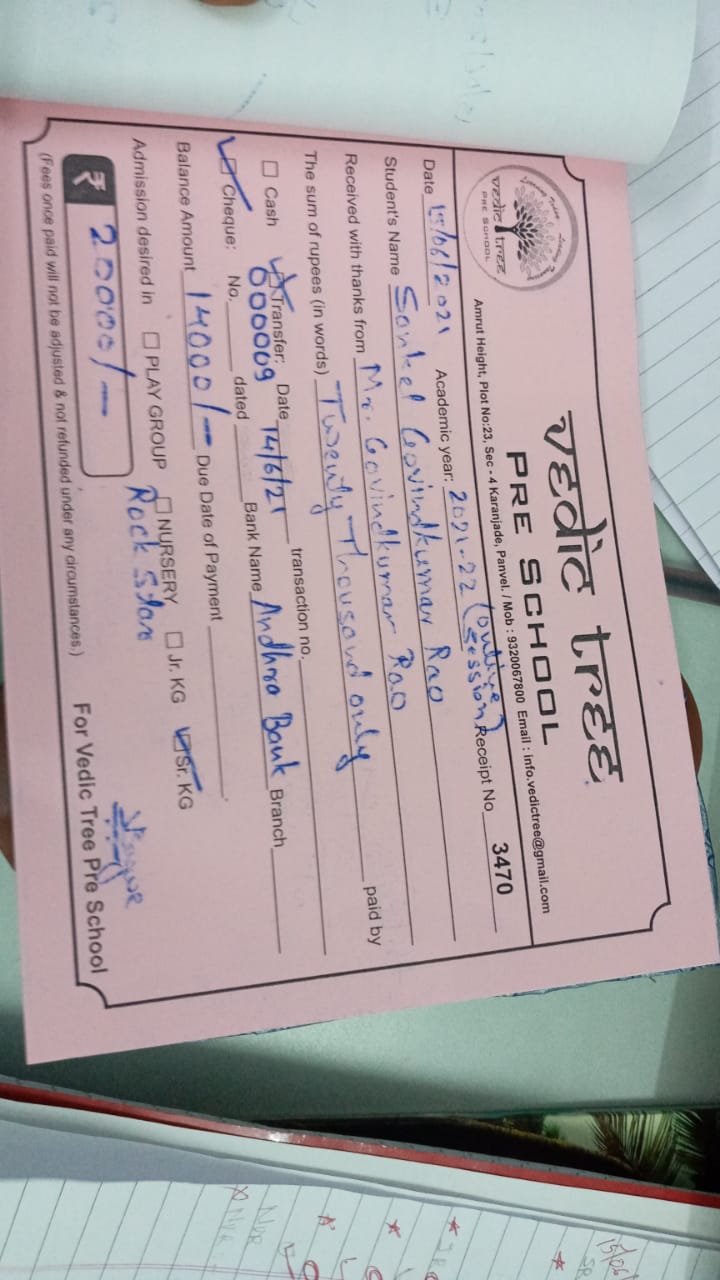 vedic tree
PRE SCHOOL
vedic tree
PRE SCHOOL
Amrut Height, Plot No:23, Sec - 4 Karanjade, Panvel. / Mob : 9320067800 Email : info.vedictree@gmail.com
Date 15/06/2021 Academic year: 2021-22 (online session) Receipt No 3470
Student's Name Sanket Govindkumar Rao
Received with thanks from Mr. Govindkumar Rao paid by
The sum of rupees (in words) Twenty Thousand only
Cash Transfer: Date 14/6/21 transaction no.
Cheque: No. 000009 dated Bank Name Andhra Bank Branch
Balance Amount 14000/- Due Date of Payment
Admission desired in PLAY GROUP NURSERY Jr. KG Sr. KG
Rock Star
₹ 20000/-
For Vedic Tree Pre School
(Fees once paid will not be adjusted & not refunded under any circumstances.)
15/06